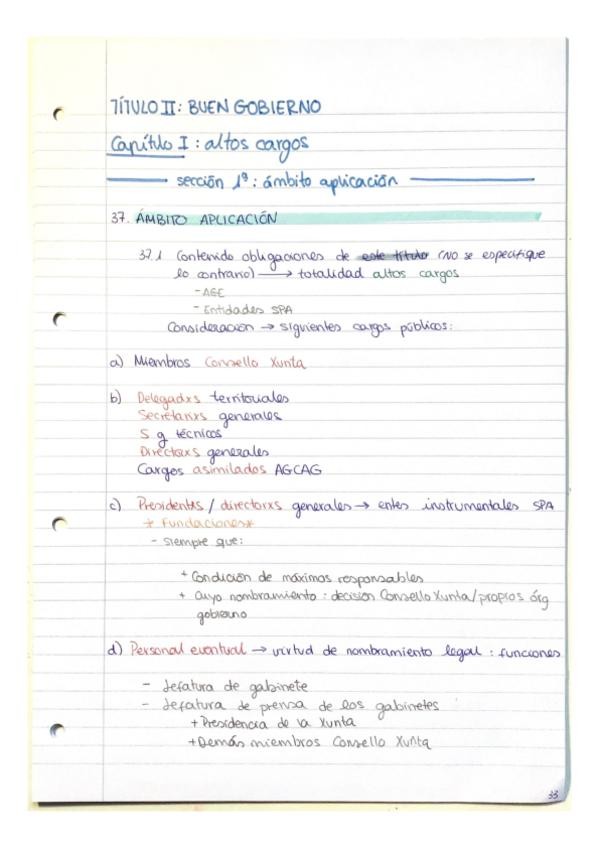 TÍTULO II: BUEN GOBIERNO
Capítulo I: altos cargos
sección 1ª: ámbito aplicación
37. ÁMBITO APLICACIÓN
37.1 Contenido obligaciones de este título (NO se especifique
lo contrario) → totalidad altos cargos
- AGE
- Entidades SPA
Consideración → siguientes cargos públicos:
a) Miembros Consello Xunta
b) Delegadxs territoriales
Secretarixs generales
S g técnicos
Directorxs generales
Cargos asimilados AGCAG
c) Presidentxs / directorxs generales → entes instrumentales SPA
* fundaciones*
- siempre que:
+ Condición de máximos responsables
+ cuyo nombramiento: decisión Consello Xunta/propios órg
gobierno
d) Personal eventual → virtud de nombramiento legal: funciones
- Jefatura de gabinete
- Jefatura de prensa de los gabinetes
+ Presidencia de la Xunta
+ Demás miembros Consello Xunta
33